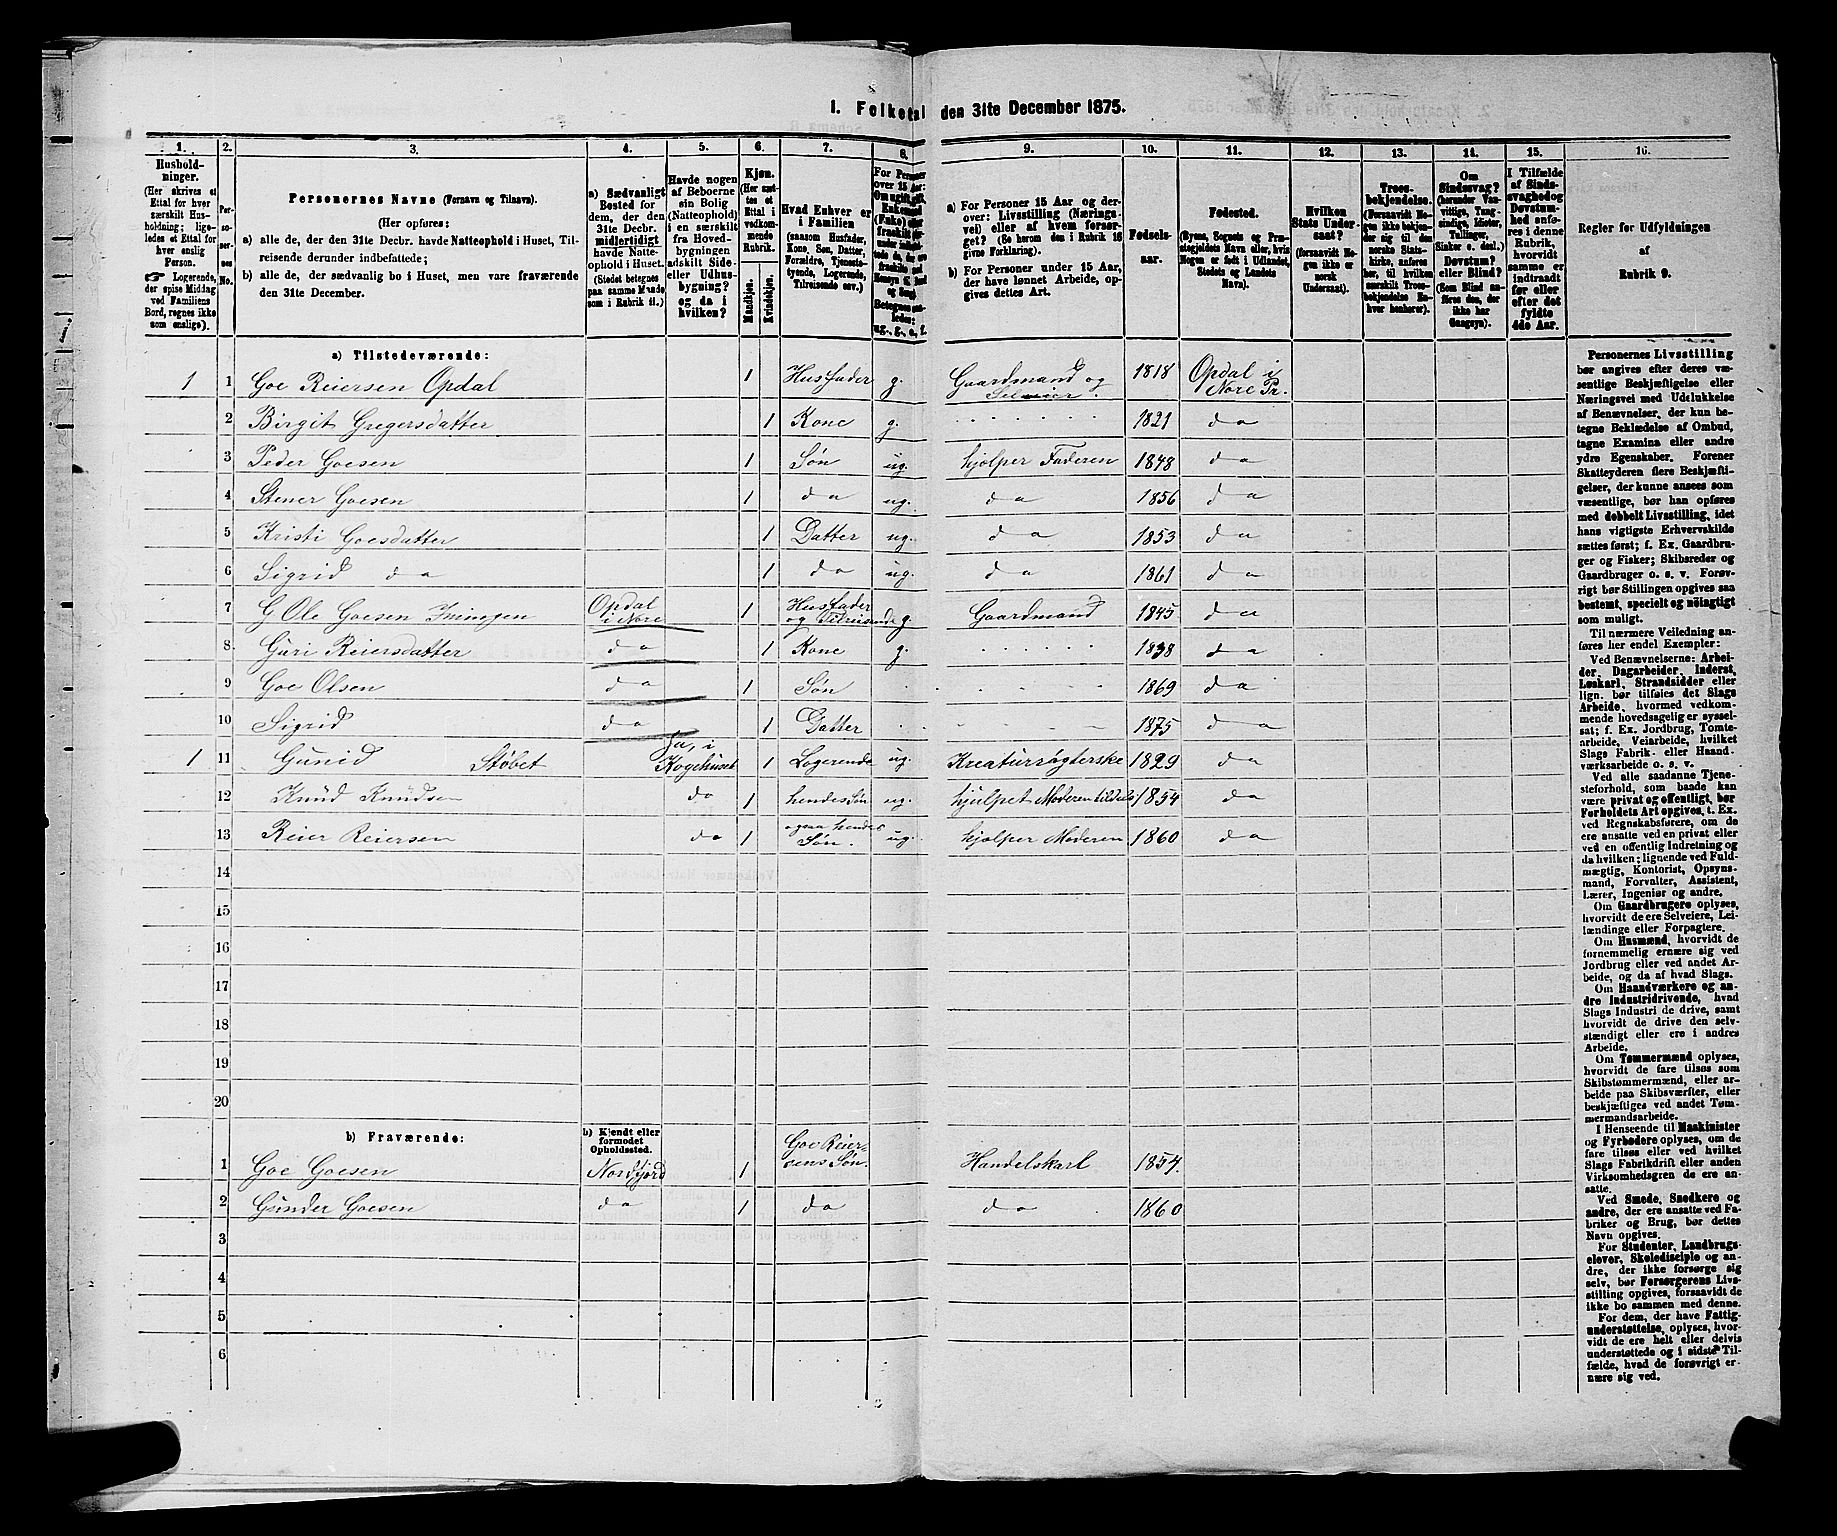 1. Folketal den 31te December 1875.
1. 2. 3. 4. 5. 6. 7. 8. 9. 10. 11. 12. 13. 14. 15. 16.
Husholdninger.
(Her skrives et
Ettal for hver
særskilt Husholdning;
ligeledes et Ettal for
hver enslig
Person.
☞ Logerende,
der spise Middag
ved Familiens
Bord, regnes ikke
som enslige).
Personernes No.
Personernes Navne (Fornavn og Tilnavn).
(Her opføres:
a) alle de, der den 31te Decbr. havde Natteophold i Huset, Tilreisende derunder indbefattede;
b) alle de, der sædvanlig bo i Huset, men vare fraværende
den 31te December.
a) Sædvanligt
Bosted for
dem, der den
31te Decbr.
midlertidigt
havde Natteophold i Huset.
(Stedet betegnes
paa samme Maade
som i Rubrik 11.)
Havde nogen
af Beboerne
sin Bolig
(Natteophold)
i en særskilt
fra Hovedbygningen
adskilt Side-
eller Udhusbygning?
og da i
hvilken?
Kjøn.
(Her sættes et
Ettal i
vedkommende
Rubrik.
Mandkjøn.
Kvindekjøn.
Hvad Enhver er
i Familien
(saasom Husfader,
Kone, Søn, Datter,
Forældre, Tjenestetyende, Logerende,
Tilreisende osv.)
For Personer
over 15 Aar:
ug., g., e., f.
a) For Personer 15 Aar og derover: Livsstilling (Næringsvei) eller af hvem forsørget? (Se herom den i Rubrik 16
givne Forklaring).
b) For Personer under 15 Aar,
der have lønnet Arbeide, opgives dettes Art.
Fødselsaar.
Fødested.
(Byens, Sognets og Præstegjeldets Navn eller, hvis
Nogen er født i Udlandet,
Stedets og Landets
Navn).
Hvilken
Stats Undersaat?
(forsaavidt Nogen ikke er
norsk
Undersaat).
Troesbekjendelse.
(Forsaavidt Nogen ikke bekjender sig til den
norske Statskirke, anføres
her, til hvilken
særskilt Troesbekjendelse Enhver henhører).
Om
Sindssvag?
(herunder Vanvittige, Tungsindige, Idioter,
Tullinger,
Sinker o. desl.)
Døvstum?
eller Blind?
(Som Blind anføres den, der
ikke har
Gangsyn).
I Tilfælde
af Sindssvaghed og
Døvstumhed anføres i denne
Rubrik,
hvorvidt
samme er
indtraadt
før eller
efter det
fyldte
4de Aar.
Regler for Udfyldningen
af
Rubrik 9.
a) Tilstedeværende:
1 1 Goe Reiersen Opdal 1 Husfader g. Gaardmand og Selveier. 1818 Opdal i Nore Pr.
2 Birgit Gregersdatter 1 Kone g. 1821 do
3 Peder Goesen 1 Søn ug. hjølper Faderen 1848 do
4 Stener Goesen 1 do ug. do 1856 do
5 Kristi Goesdatter 1 Datter ug. do 1853 do
6 Sigrid do 1 do ug. do 1861 do
7 Ole Goesen Opdal i Nore 1 Husfader og Tilreisende g. Gaardmand 1845 do
8 Guri Reiersdatter do 1 Kone g. 1838 do
9 Goe Olsen do 1 Søn 1869 do
10 Sigrid do 1 Datter 1875 do
1 11 Gunid Støbet Ja, i Kogehuset 1 Logerende ug. Kreaturrøgterske 1829 do
12 Knud Knudsen do 1 hendes Søn ug. hjelper Moderen tildels 1854 do
13 Reier Reiersen do 1 ogsaa hendes Søn. ug. hjølper Moderen 1860 do
14
15
16
17
18
19
20
b) Fraværende:
b) Kjendt eller
formodet
Opholdssted.
1 Goe Goesen Nordfjord 1 Goe Reiersens Søn. Handelskarl 1854.
2 Gunder Goesen do 1 do do 1860
3
4
5
6
Personernes Livsstilling
bør angives efter deres væsentlige Beskjæftigelse eller
Næringsvei med Udelukkelse
af Benævnelser, der kun betegne Beklædelse af Ombud,
tagne Examina eller andre
ydre Egenskaber. Forener
Skatteyderen flere Beskjæftigelser, der kunne ansees som
væsentlige, bør han opføres
med dobbelt Livsstilling, idet
hans vigtigste Erhvervskilde
sættes først; f. Ex. Gaardbruger og Fisker; Skibsreder og
Gaardbruger o. s. v. Forøvrigt bør Stillingen opgives saa
bestemt, specielt og nöiagtigt
som muligt.
Til nærmere Veiledning anføres her endel Exempler:
Ved Benævnelserne: Arbeider, Dagarbeider, Inderst,
Løskarl, Strandsidder eller
lign. bør tilføies det Slags
Arbeide, hvormed vedkommende hovedsagelig er sysselsat; f. Ex. Jordbrug, Tomtearbeide, Veiarbeide, hvilket
Slags Fabrik- eller Haandværksarbeide o. s. v.
Ved alle saadanne Tjenesteforhold, som baade kan
være privat og offentligt, bør
Forholdets Art opgives, t. Ex.
ved Regnskabsførere, om de
ere ansatte ved en privat eller
ved en offentlig Indretning og
da hvilken; lignende ved Fuldmægtig, Kontorist, Opsynsmand, Forvalter, Assistent,
Lærer, Ingeniør og andre.
Om Gaardbrugere oplyses,
hvorvidt de ere Selveiere, Leilændinge eller Forpagtere.
Om Husmænd, hvorvidt de
fornemmelig ernære sig ved
Jordbrug eller ved andet Arbeide, og da af hvad Slags.
Om Haandværkere og andre Industridrivende, hvad
Slags Industri de drive, samt
hvorvidt de drive den selvstændigt eller ere i andres
Arbeide.
Om Tømmermænd oplyses,
hvorvidt de fare tilsøs som
Skibstømmermænd, eller arbeide paa Skibsværfter, eller
beskjæftiges ved andet Tømmermandsarbeide.
I Henseende til Maskinister
og Fyrbødere oplyses, om de
fare tilsøs eller ved hvilket
Slags Fabrikdrift eller anden
Virksomhedsgren de ere ansatte.
Ved Smede, Snedkere og
andre, der ere ansatte ved Fabriker og Brug, bør dettes
Navn opgives.
For Studenter, Landbrugselever, Skoledisciple og andre, der ikke forsørge sig
selv, bør Forsørgerens Livsstilling opgives, forsaavidt de
ikke bo sammen med denne.
For dem, der have Fattigunderstøttelse, oplyses, hvorvidt de ere helt eller delvis
understøttede og i sidste Tilfælde, hvad de forøvrigt ernære sig ved.